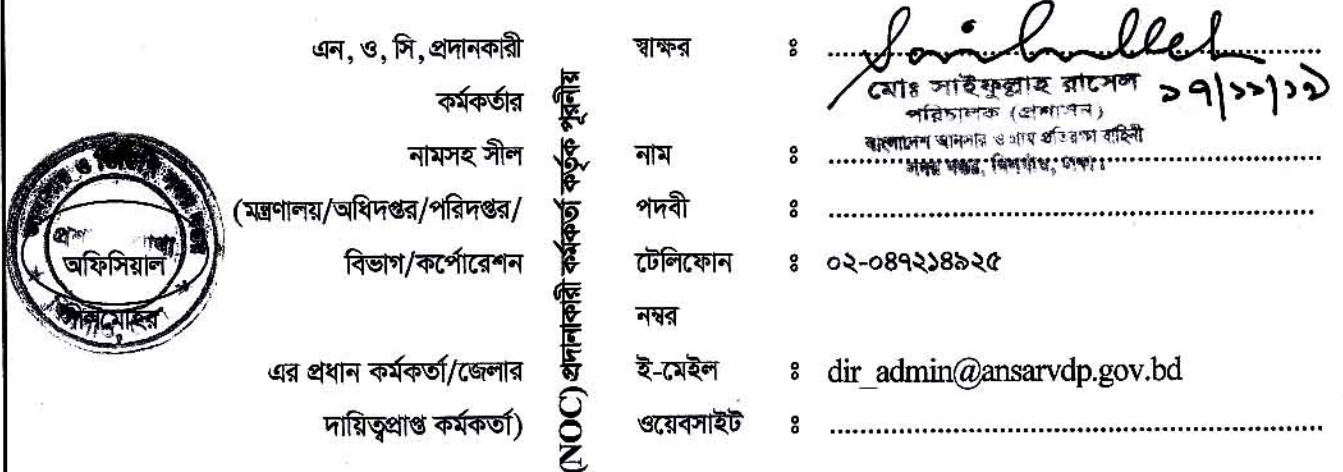 এন, ও, সি, প্রদানকারী
কর্মকর্তার
নামসহ সীল
(মন্ত্রণালয়/অধিদপ্তর/পরিদপ্তর/
বিভাগ/কর্পোরেশন
এর প্রধান কর্মকর্তা/জেলার
দায়িত্বপ্রাপ্ত কর্মকর্তা)
অফিসিয়াল
সীলমোহর
(NOC) প্রদানকারী কর্মকর্তা কর্তৃক পূরনীয়
স্বাক্ষর ঃ
মোঃ সাইফুল্লাহ রাসেল ১৭/১১/১৯
পরিচালক (প্রশাসন)
বাংলাদেশ আনসার ও গ্রাম প্রতিরক্ষা বাহিনী
সদর দপ্তর, খিলগাঁও, ঢাকা।
নাম ঃ
পদবী ঃ
টেলিফোন ঃ ০২-০৪৭২১৪৯২৫
নম্বর
ই-মেইল ঃ dir_admin@ansarvdp.gov.bd
ওয়েবসাইট ঃ